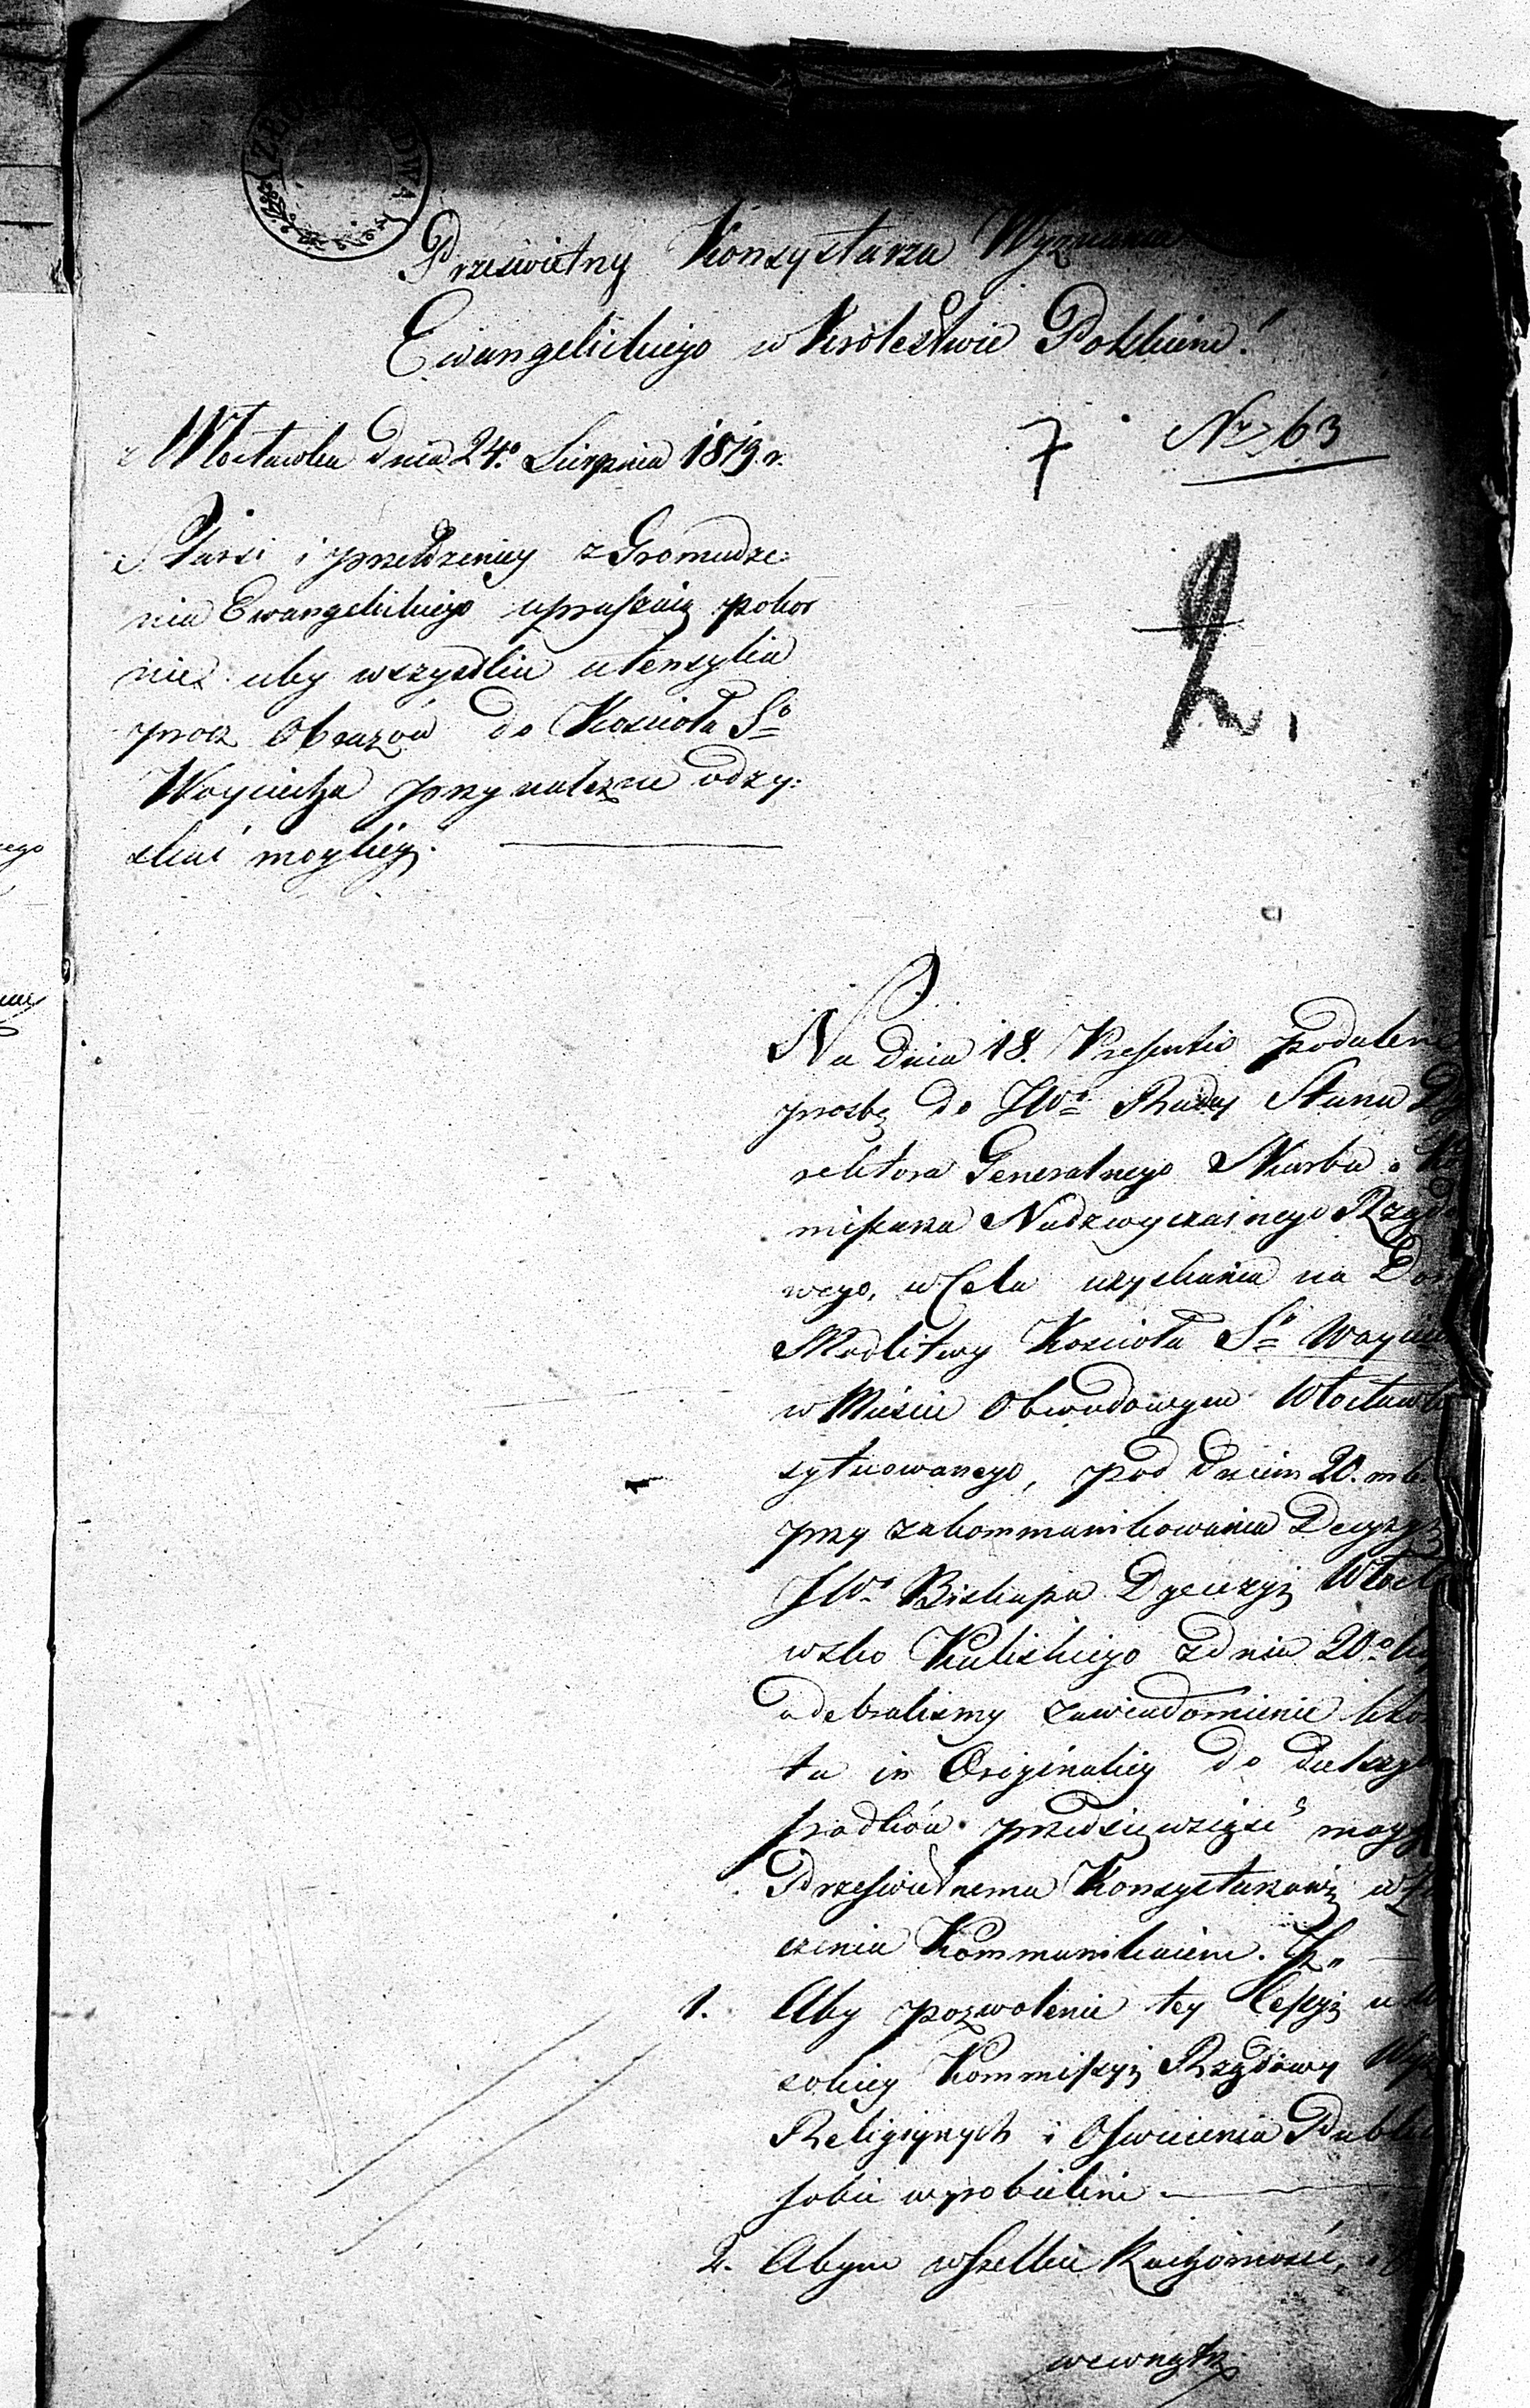 Prześwietny Konsystarzu Wyznania
Ewangelickiego w Królestwie Polskiem!
z Włocławka dnia 24º Sierpnia 1819. r.
7
Nr 763
Starsi i przełożeniy zGromadze:
nia Ewangelickiego upraszaią pokor
nie: aby wszystkie utensylia
procz Obrazów do Kościoła Sº
Woyciecha przynależne odzy:
skać mogliey.
2.
Na dnia 18. Presentis podaliem
prozbę do JWº Radcy Stanu Dy
rektora Generalnego Skarbu i Ko
missarza Nadzwyczainego Rządo
wego, w Celu uzyskania na Dom
Modlitwy Kościoła Sº Woyciec
w Mieście Obwodowym Włocławk
sytuowanego, pod dniem 20. m b.
przy zakommunikowaniu Decyzyi
JWº Biskupa Dyecezyi Włocła
wsko Kaliskiego zdnia 20º
odebraliśmy zawiadomienie
ta in Originaliey do dalszych
srodków przedsięwzięść mogą
Prześwietnemu Konsystarzowi w
czeniu Kommunikuiem.
1. Aby pozwolenie tey Cessyi u
sokiey Kommissyi Rządowy Wyz
Religiynych i Oświecenia Public
sobie wyrobielim
2. Abym wszelkie Ruchomości,
wewnątrz